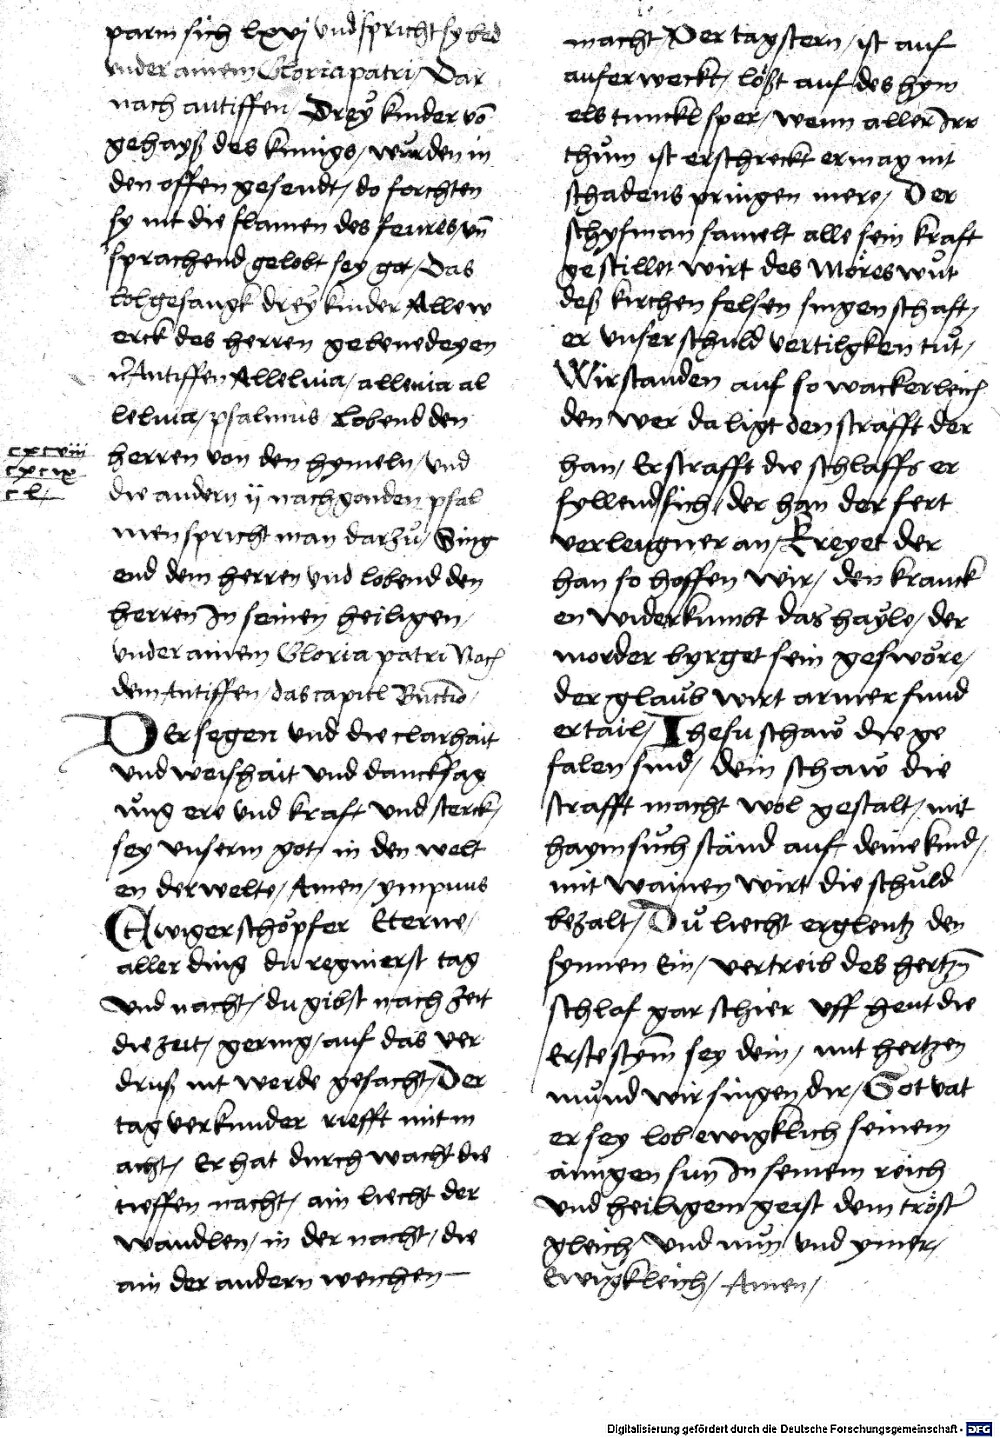 parm sich lxvj vnd spricht sy bed
vnder ainem Gloria patri / Dar
nach antiffen / Drey kinder võ
gehayß des kunigs / wůrden in
den offen gesendt / do forchten
sy nit die flamen des feures / vñ
sprachend gelobt sey got / Das
lobgesangk drey kinder Alle w
erck des herren gebenedeyen
Antiffen Alleluia / alleuia al
leluia / psalmus Lobend den
cxcviii
herren von den hymeln / vnd
cxcix
die andern ij nachgonden psal
cl
men spricht man darzů / Sing
end dem herren vnd lobend den
herren In seinen heiligen /
vnder ainem Gloria patri Noch
dem Antiffen / das capitl
Der segen vnd die clarhait
vnd weishait vnd dancksag
ůng ere vnd kraft vnd sterck /
sey vnserm got / in den welt
en der welte / Amen / ympnus
Ewiger schöpfer Eterne /
aller ding du regnierst tag
vnd nacht / du gibst nach zeit
die zeit / gering / auf das ver
druß nit werde gesacht / Der
tag verkunder riefft mit in
acht / Er hat durch wacht die
tieffen nacht / ain liecht der
wandlen / in der nacht / die
ain der andern weichen
macht Der tagstern / ist auf
auferweckt / lößt auf des hym
els tunckl sper / wenn aller Irr
thům ist erschreckt er mag nit
schadens pringen mere / Der
schyfman samelt alle sein kraft
gestillet wirt des Möres wůt
deß kirchen felsen singenschaft /
er vnser schuld vertilgken tůt /
Wir standen auf so wackerleich
den wer da ligt den strafft der
han / Er strafft die schlaffs er
fyllend sich / der han der fert
verleugner an / Kreyet der
han so hoffen wir / den kranck
en widerkumbt das hayle / der
morder byrget sein geswöre /
der glaub wirt armer sund
er tail / Ihesu schaw die ge
falen sind / dein schaw die
strafft macht wol gestalt / mit
haymsůch ständ auf deine kind /
mit wainen wirt die schůld
bezalt / Dů liecht erglentz den
synnen Ein / vertreib des hertzñ
schlaf gar schier vff heut die
Erste stym̃ sey dein / mit hertzen
můnd wir singen dir / Got vat
er sey lob ewigklich seinem
ainigen sun In seinem reich
vnd heiligem geist dem tröster
gleich / vnd nůn vnd ymer /
Ewigkleich / Amen /
Digitalisierung gefördert durch die Deutsche Forschungsgemeinschaft - DFG